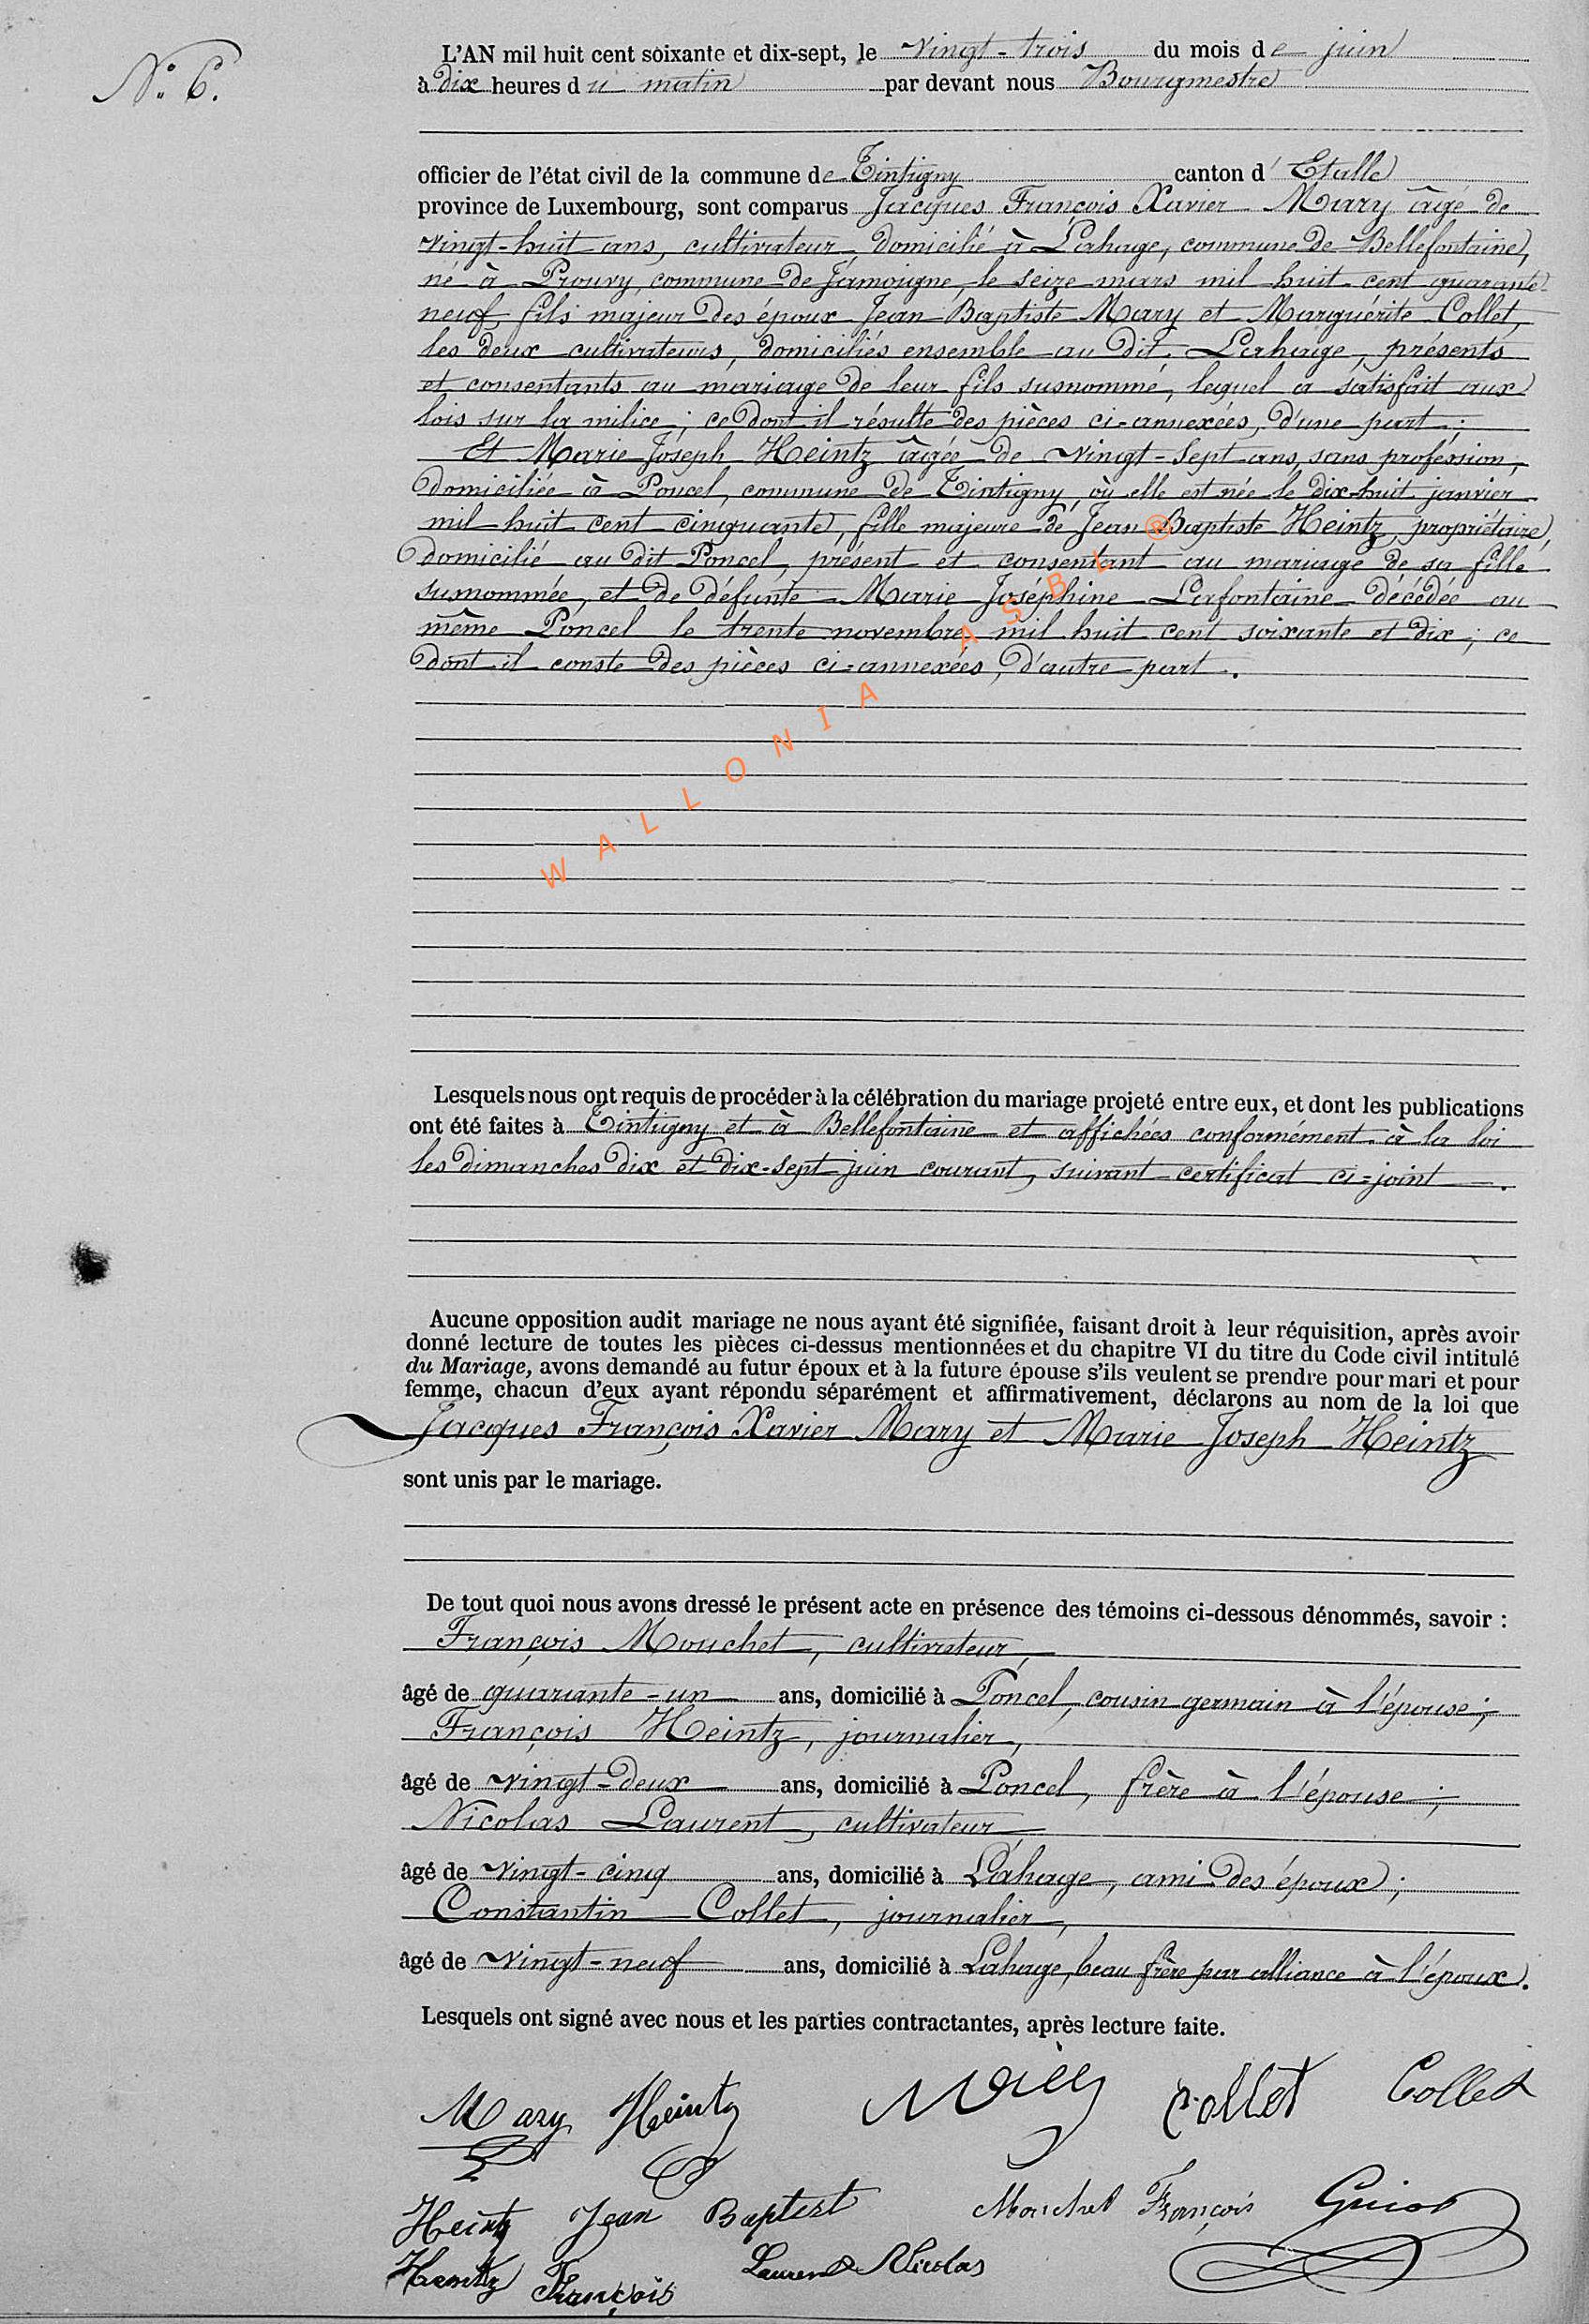 N.º 6.
L'AN mil huit cent soixante et dix-sept, le vingt-trois du mois de juin
à dix heures du matin par devant nous Bourgmestre
officier de l'état civil de la commune de Tintigny canton d'Etalle
province de Luxembourg, sont comparus Jacques François Xavier Mary âgé de
vingt-huit ans, cultivateur, domicilié à Lahage, commune de Bellefontaine,
né à Prouvy, commune de Jamoigne, le seize mars mil huit cent quarante-
neuf, fils majeur des époux Jean Baptiste Mary et Marguérite Collet,
les deux cultivateurs, domiciliés ensemble au dit Lahage, présents
et consentants au mariage de leur fils susnommé, lequel a satisfait aux
lois sur la milice; ce dont il résulte des pièces ci-annexées, d'une part;
Et Marie Joseph Heintz âgée de vingt-sept ans, sans profession,
domiciliée à Poncel, commune de Tintigny, où elle est née le dix-huit janvier
mil huit cent cinquante, fille majeure de Jean Baptiste Heintz, propriétaire,
domicilié au dit Poncel, présent et consentant au mariage de sa fille
susnommée, et de défunte Marie Joséphine Lafontaine décédée au
même Poncel le trente novembre mil huit cent soixante et dix; ce
dont il conste des pièces ci=annexées, d'autre part.
WALLONIA ASBL ®
Lesquels nous ont requis de procéder à la célébration du mariage projeté entre eux, et dont les publications
ont été faites à Tintigny et à Bellefontaine et affichées conformément à la loi
les dimanches dix et dix-sept juin courant, suivant certificat ci=joint.
Aucune opposition audit mariage ne nous ayant été signifiée, faisant droit à leur réquisition, après avoir
donné lecture de toutes les pièces ci-dessus mentionnées et du chapitre VI du titre du Code civil intitulé
du Mariage, avons demandé au futur époux et à la future épouse s'ils veulent se prendre pour mari et pour
femme, chacun d'eux ayant répondu séparément et affirmativement, déclarons au nom de la loi que
Jacques François Xavier Mary et Marie Joseph Heintz
sont unis par le mariage.
De tout quoi nous avons dressé le présent acte en présence des témoins ci-dessous dénommés, savoir :
François Mouchet, cultivateur,
âgé de quarante-un ans, domicilié à Poncel, cousin germain à l'épouse;
François Heintz, journalier,
âgé de vingt-deux ans, domicilié à Poncel, frère à l'épouse;
Nicolas Laurent, cultivateur
âgé de vingt-cinq ans, domicilié à Lahage, ami des époux;
Constantin Collet, journalier,
âgé de vingt-neuf ans, domicilié à Lahage, beau frère par alliance à l'époux.
Lesquels ont signé avec nous et les parties contractantes, après lecture faite.
Mary Heintz Collet Collet
Heintz Jean Baptist Mouchet François Guiot
Heintz François Laurent Nicolas